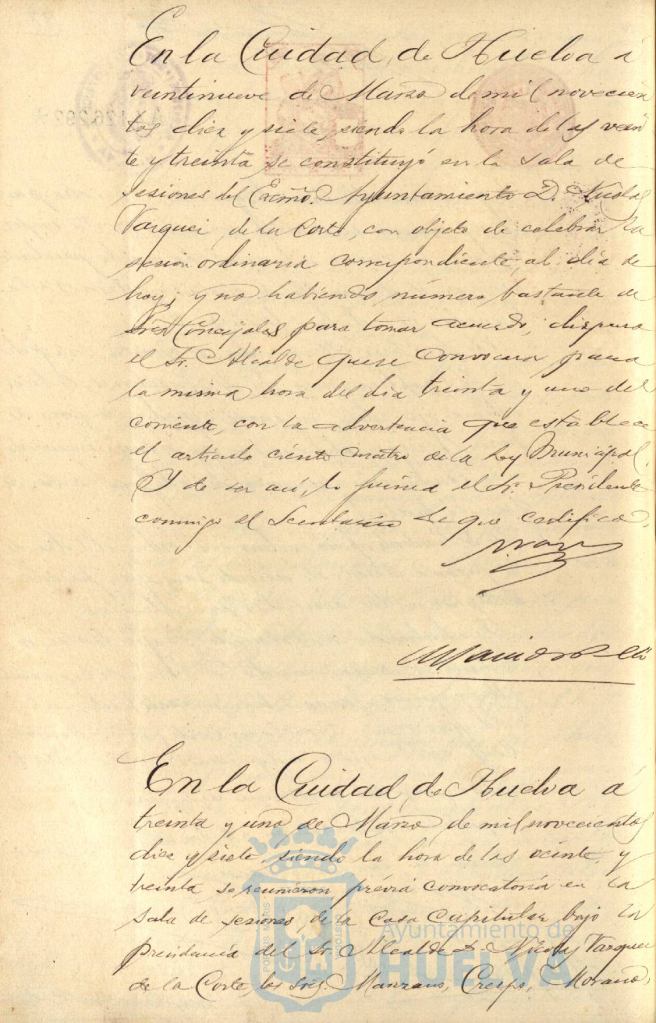 En la Ciudad de Huelva á
veintinueve de Marzo de mil novecien
tos diez y siete, siendo la hora de las vein
te y treinta se constituyó en la Sala de
sesiones del Excmo. Ayuntamiento D. Nicolas
Vazquez, de la Corte, con objeto de celebrar la
sesion ordinaria correspondiente, al dia de
hoy; y no habiendo número bastante de
Sres Concejales para tomar acuerdo, dispuso
el Sr. Alcalde que se convocara para
la misma hora del dia treinta y uno del
corriente, con la advertencia que establece
el articulo ciento cuatro de la Ley Municipal.
Y de ser así, lo firma el Sr. Presidente
conmigo el Secretario de que certifico.
En la Ciudad de Huelva á
treinta y uno de Marzo de mil novecientos
diez y siete, siendo la hora de las veinte y
treinta se reunieron prévia convocatoria en la
sala de sesiones, de la Casa Capitular bajo la
presidencia del Sr. Alcalde D. Nicolas Vazquez
de la Corte, los Sres. Manzano, Crespo, Morano,
Ayuntamiento de
HUELVA